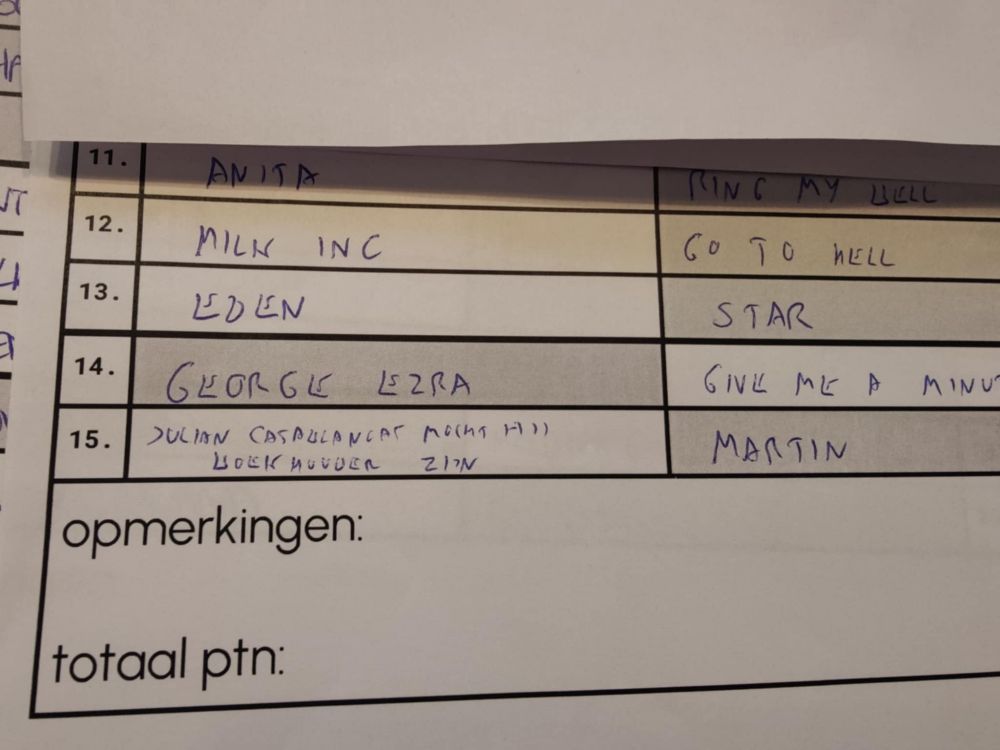 11. ANITA RING MY BELL
12. MILK INC GO TO HELL
13. EDEN STAR
14. GEORGE EZRA GIVE ME A MINUT
15. JULIAN CASABLANCAS MOCHT HIJ MARTIN
BOEKHOUDER ZIJN
opmerkingen:
totaal ptn: